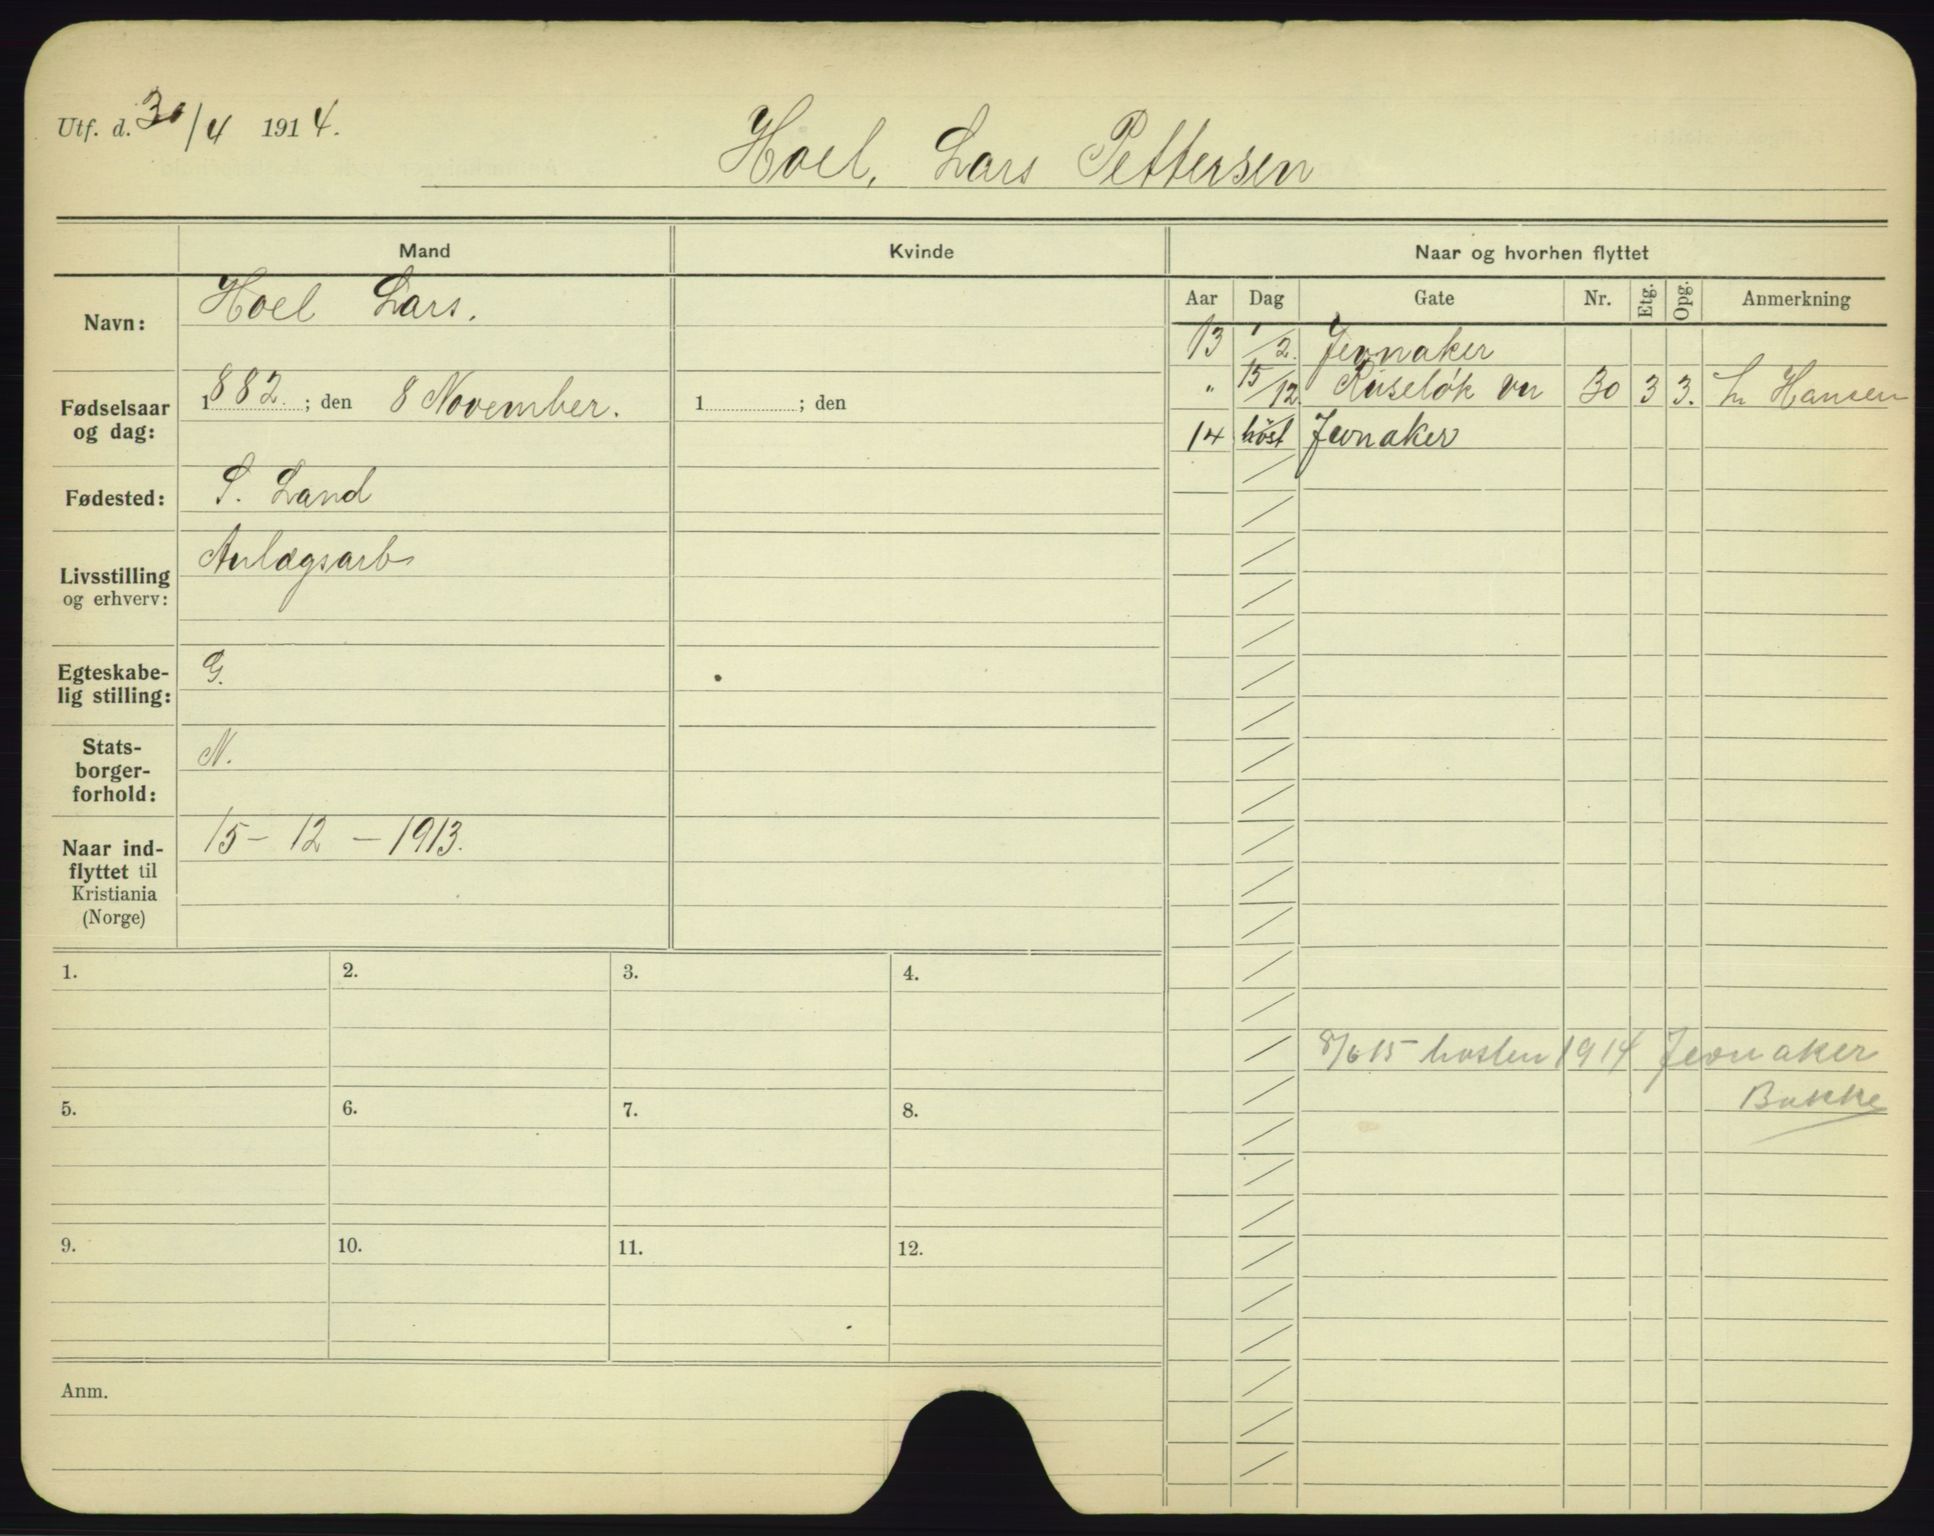 Utf. d. 30/4 1914.
Hoel, Lars Pettersen
Mand
Kvinde
Naar og hvorhen flyttet
Navn:
Hoel Lars.
Fødselsaar og dag:
1882.; den 8 November.
1 ; den
Fødested:
S. Land
Livsstilling og erhverv:
Anlægsarb
Egteskabe-
lig stilling:
G.
Stats-
borger-
forhold:
N.
Naar ind-
flyttet til
Kristiania
(Norge)
15 - 12 - 1913.
Aar Dag Gate Nr. Etg. Opg. Anmerkning
13 1/2. Jevnaker
" 15/12. Ruseløk vn 30 3 3. Hansen
14 høst Jevnaker
8/6 15 høsten 1914 Jevnaker
Bakke
1. 2. 3. 4.
5. 6. 7. 8.
9. 10. 11. 12.
Anm.